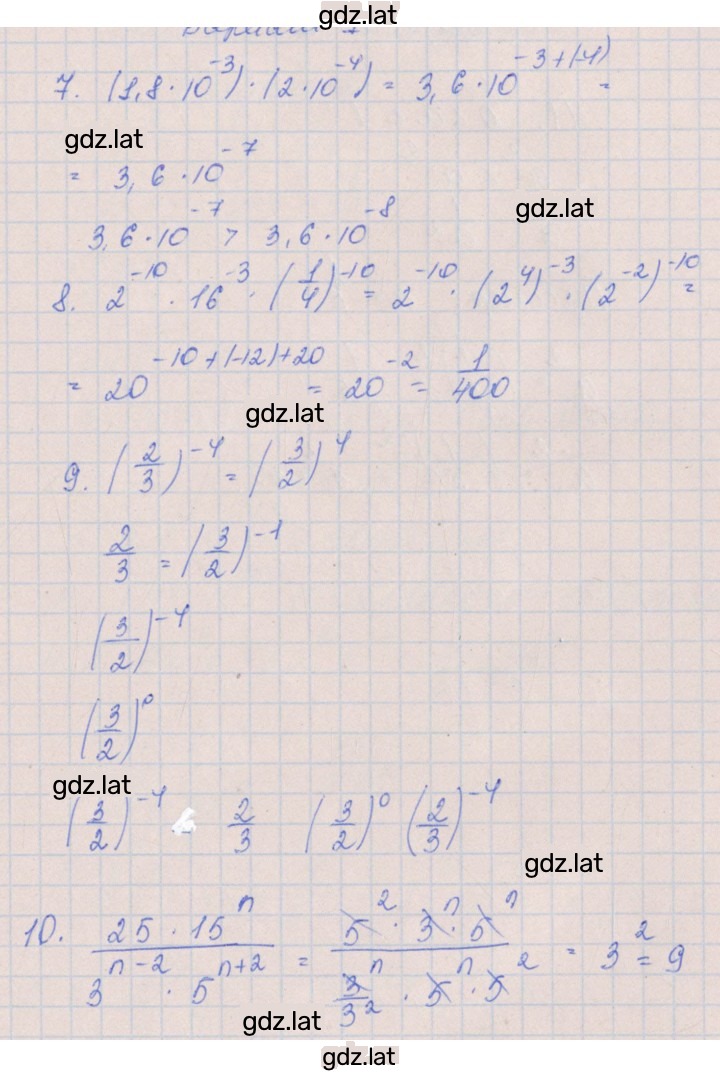 gdz.lat
7. (1,8 · 10^-3) · (2 · 10^-4) = 3,6 · 10^-3+(-4) =
gdz.lat
= 3,6 · 10^-7
gdz.lat
3,6 · 10^-7 > 3,6 · 10^-8
8. 2^-10 · 16^-3 · (1/4)^-10 = 2^-10 · (2^4)^-3 · (2^-2)^-10 =
= 20^-10+(-12)+20 = 20^-2 = 1/400
gdz.lat
9. (2/3)^-4 = (3/2)^4
2/3 = (3/2)^-1
(3/2)^-4
(3/2)^0
gdz.lat
(3/2)^-4 2/3 (3/2)^0 (2/3)^-4
gdz.lat
10. 25 · 15^n / 3^n-2 · 5^n+2 = 5^2 · 3^n · 5^n / 3^n/3^2 · 5^n · 5^2 = 3^2 = 9
gdz.lat
gdz.lat